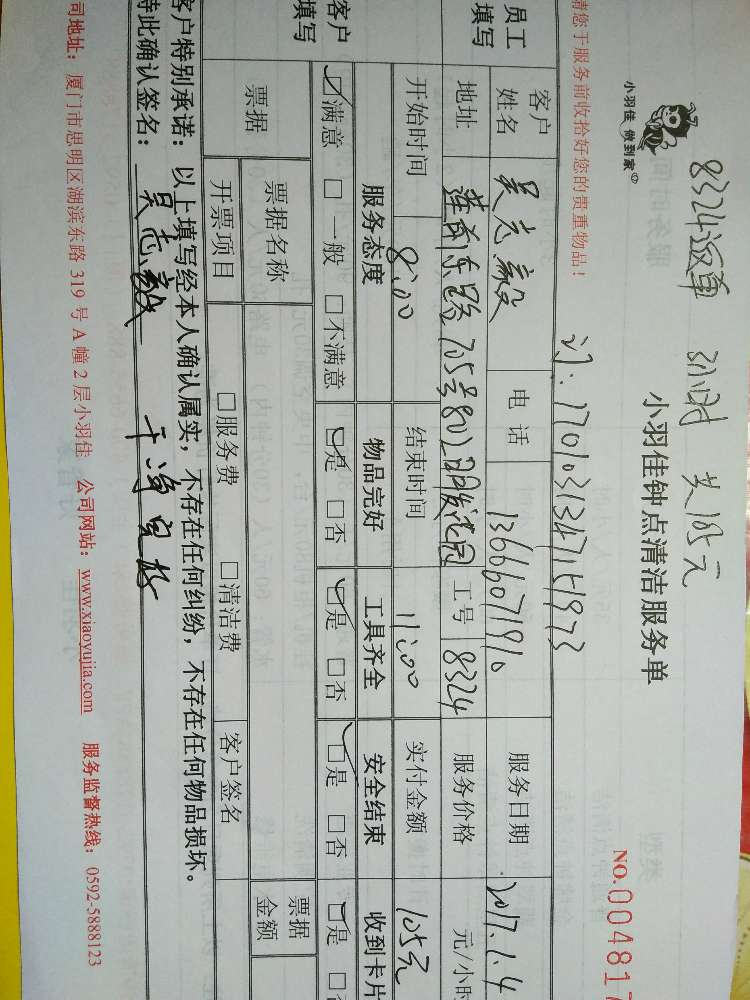 8324返单 3小时 共105元
小羽佳 做到家
小羽佳钟点清洁服务单
NO.004817
请您于服务前收拾好您的贵重物品!
订: 1701031347151973
员工填写
客户姓名 吴志毅 电话 13666071910 服务日期 2017.1.4
地址 莲前东路705号802 工号 8324 服务价格 元/小时
开始时间 8:00 结束时间 11:00 实付金额 105元
客户填写
服务态度 物品完好 工具齐全 安全结束 收到卡片
☑满意 □一般 □不满意 ☑是 □否 ☑是 □否 ☑是 □否 ☑是 □
票据 票据名称 票据金额
开票项目 □服务费 □清洁费 客户签名
客户特别承诺:以上填写经本人确认属实,不存在任何纠纷,不存在任何物品损坏。
特此确认签名: 吴志毅
司地址: 厦门市思明区湖滨东路 319 号 A 幢 2 层小羽佳 公司网站: www.xiaoyujia.com 服务监督热线: 0592-5888123